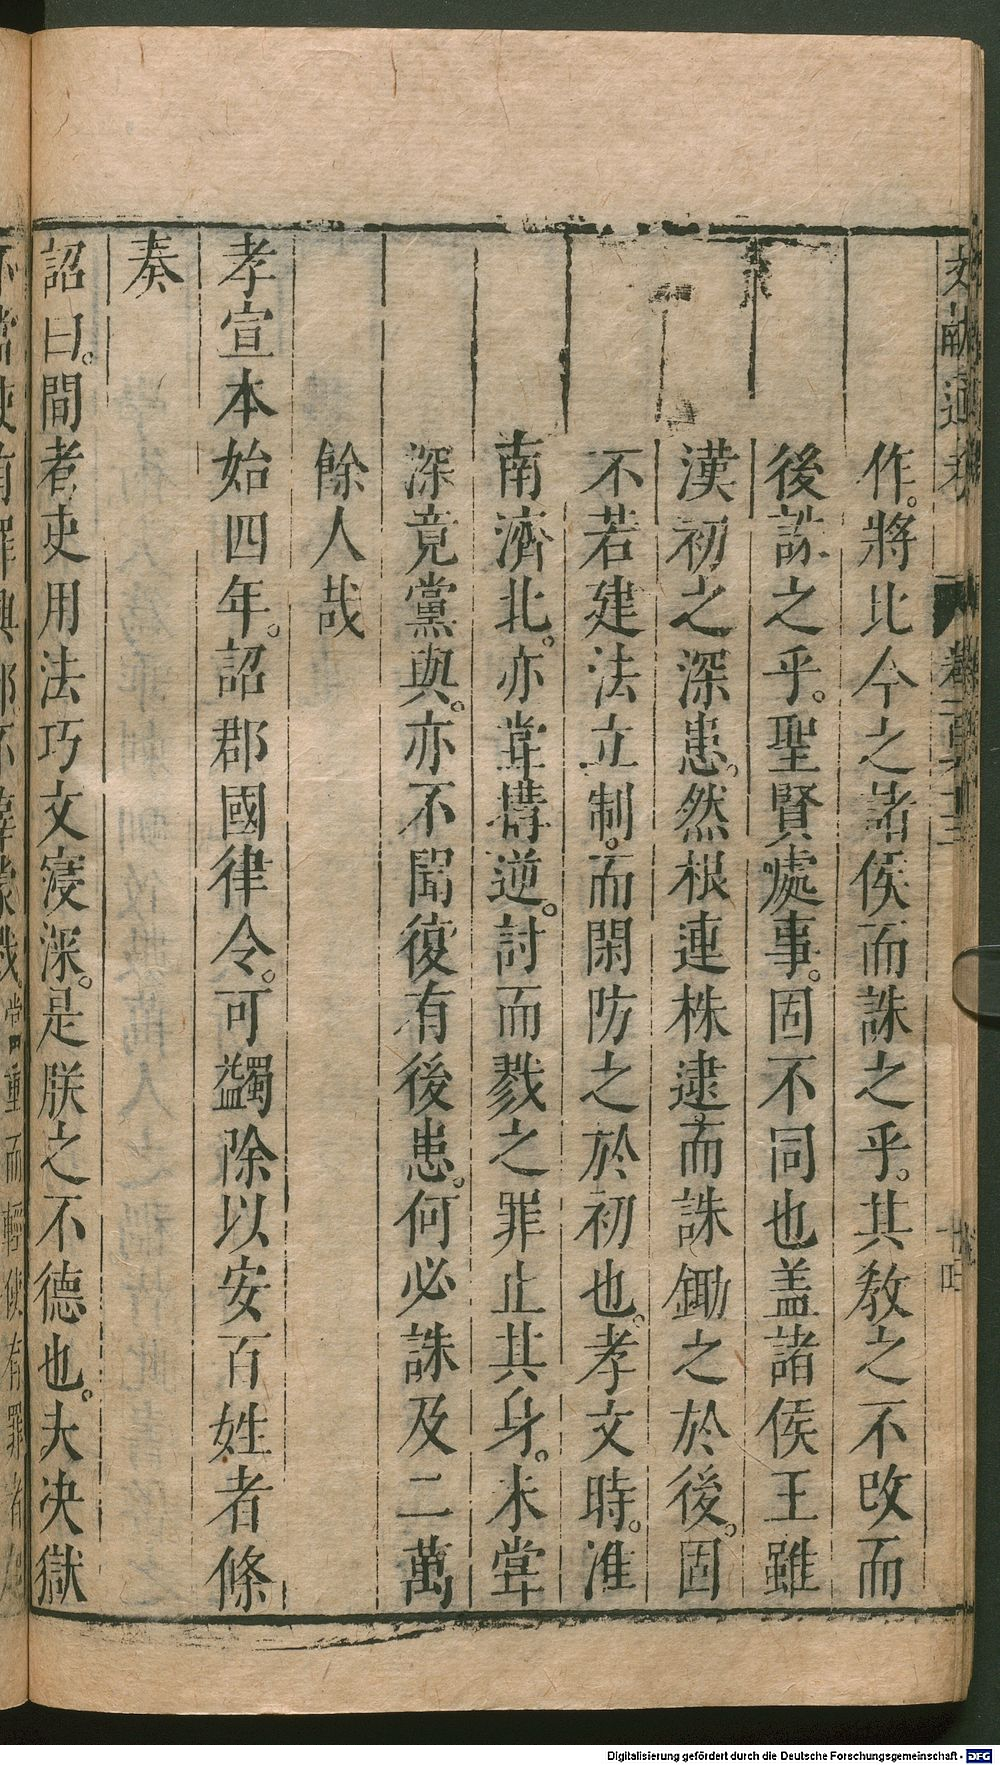 文獻通考 卷一百六十三 十四
作。將比今之諸侯而誅之乎。其教之不改而
後誅之乎。聖賢處事。固不同也盖諸侯王雖
漢初之深患。然根連株逮。而誅鋤之於後。固
不若建法立制。而閑防之於初也。孝文時。淮
南濟北。亦甞搆逆。討而戮之罪止其身。未甞
深竟黨與。亦不聞復有後患。何必誅及二萬
餘人哉
孝宣本始四年。詔郡國律令。可蠲除以安百姓者條
奏
詔曰。間者吏用法巧文寖深。是朕之不德也。夫决獄
不當使有罪興邪不辜蒙戮。當重而輕使有罪者起
Digitalisierung gefördert durch die Deutsche Forschungsgemeinschaft - DFG